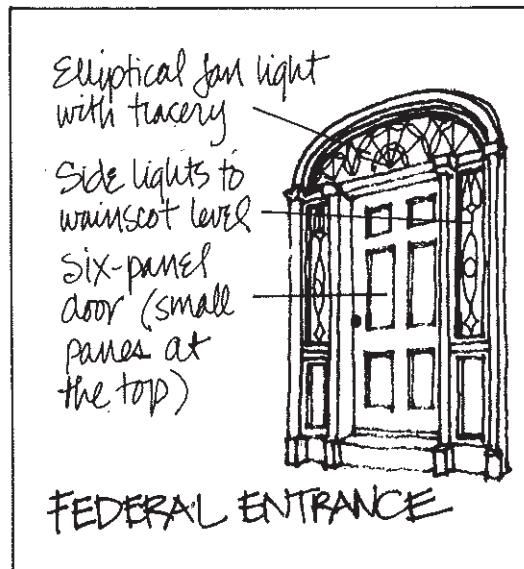 Elliptical fan light
with tracery
Side lights to
wainscot level
six-panel
door (small
panes at
the top)
FEDERAL ENTRANCE